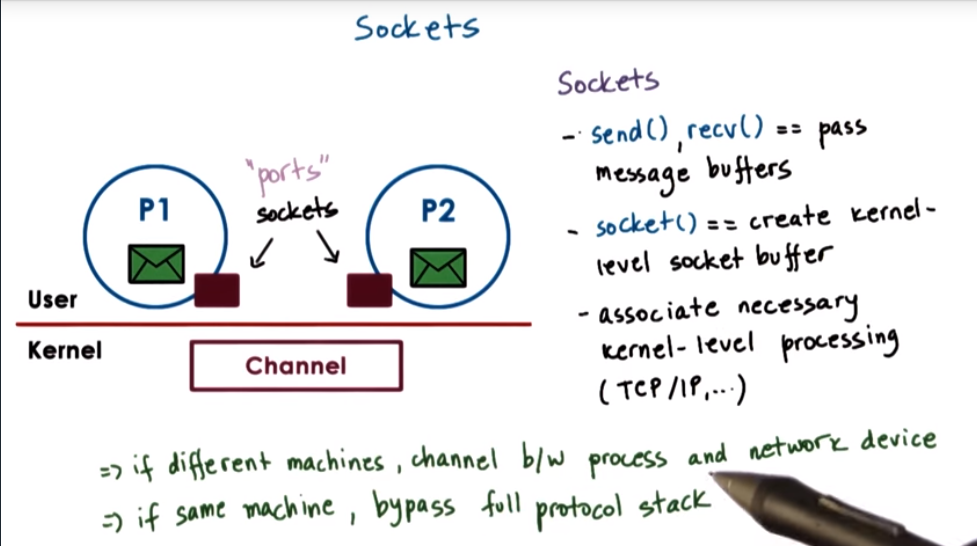 Sockets
"ports"
sockets
P1
P2
User
Kernel
Channel
Sockets
- send(), recv() == pass
message buffers
- socket() == create kernel-
level socket buffer
- associate necessary
kernel-level processing
(TCP/IP,...)
=> if different machines, channel b/w process and network device
=> if same machine, bypass full protocol stack